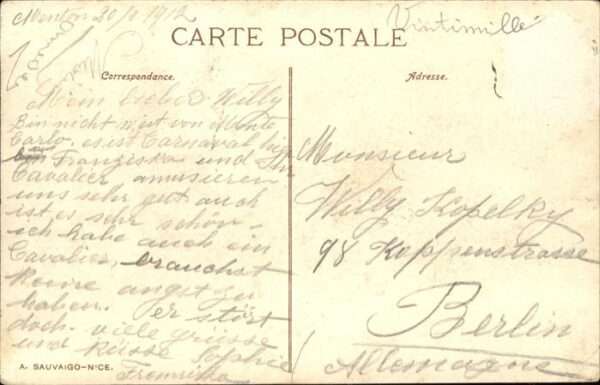 Menton 20/2 1912
Vintimille
CARTE POSTALE
Correspondance.
Mein lieber Willy
Bin nicht weit von Monte
Carlo. es ist Carnaval hier
Franziska und Ihr
Cavalier amusieren
uns sehr gut auch
ist es sehr schön.
ich habe auch ein
Cavalier, brauchst
Keine angst zu
haben. er stört
doch. viele grüsse
und Küsse Sophie
A. SAUVAIGO-NICE.
Adresse.
Monsieur
Willy Kopelky
98 Koppenstrasse
Berlin
Allemagne